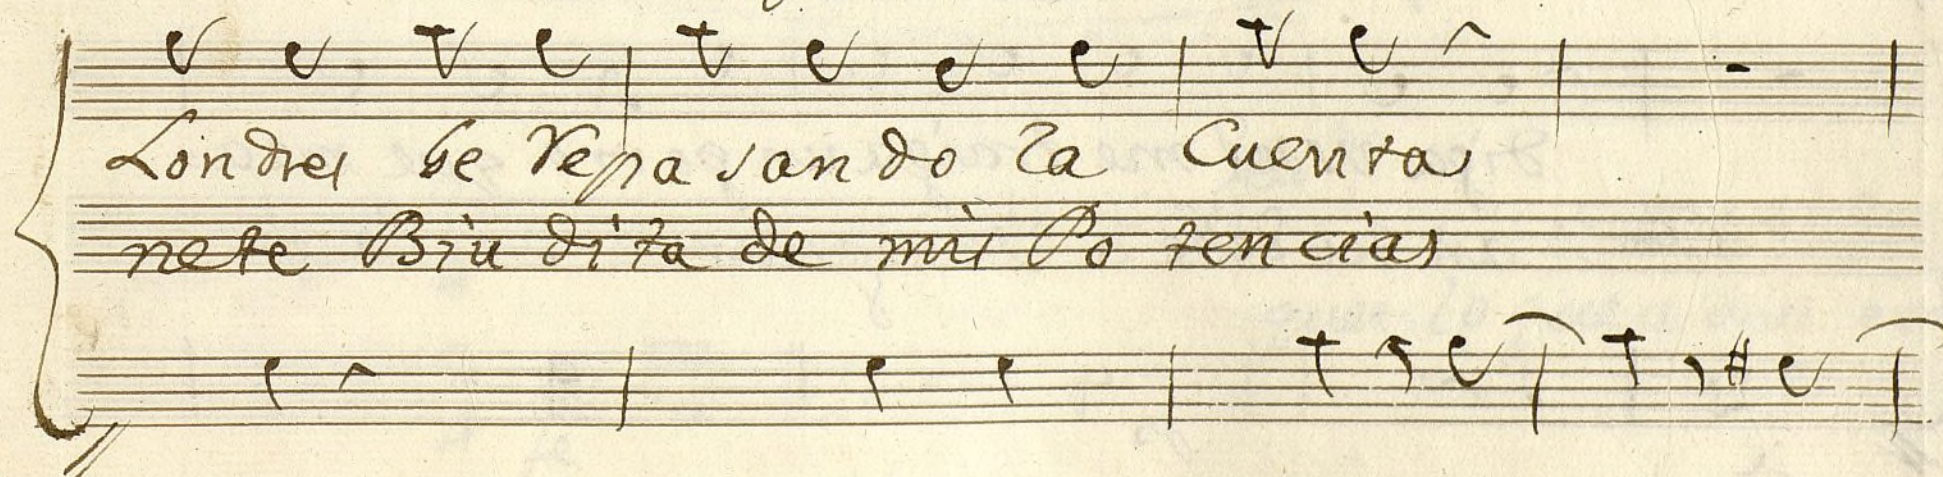 Londres be Repasando la Cuenta
nete Biudita de mis Potencias